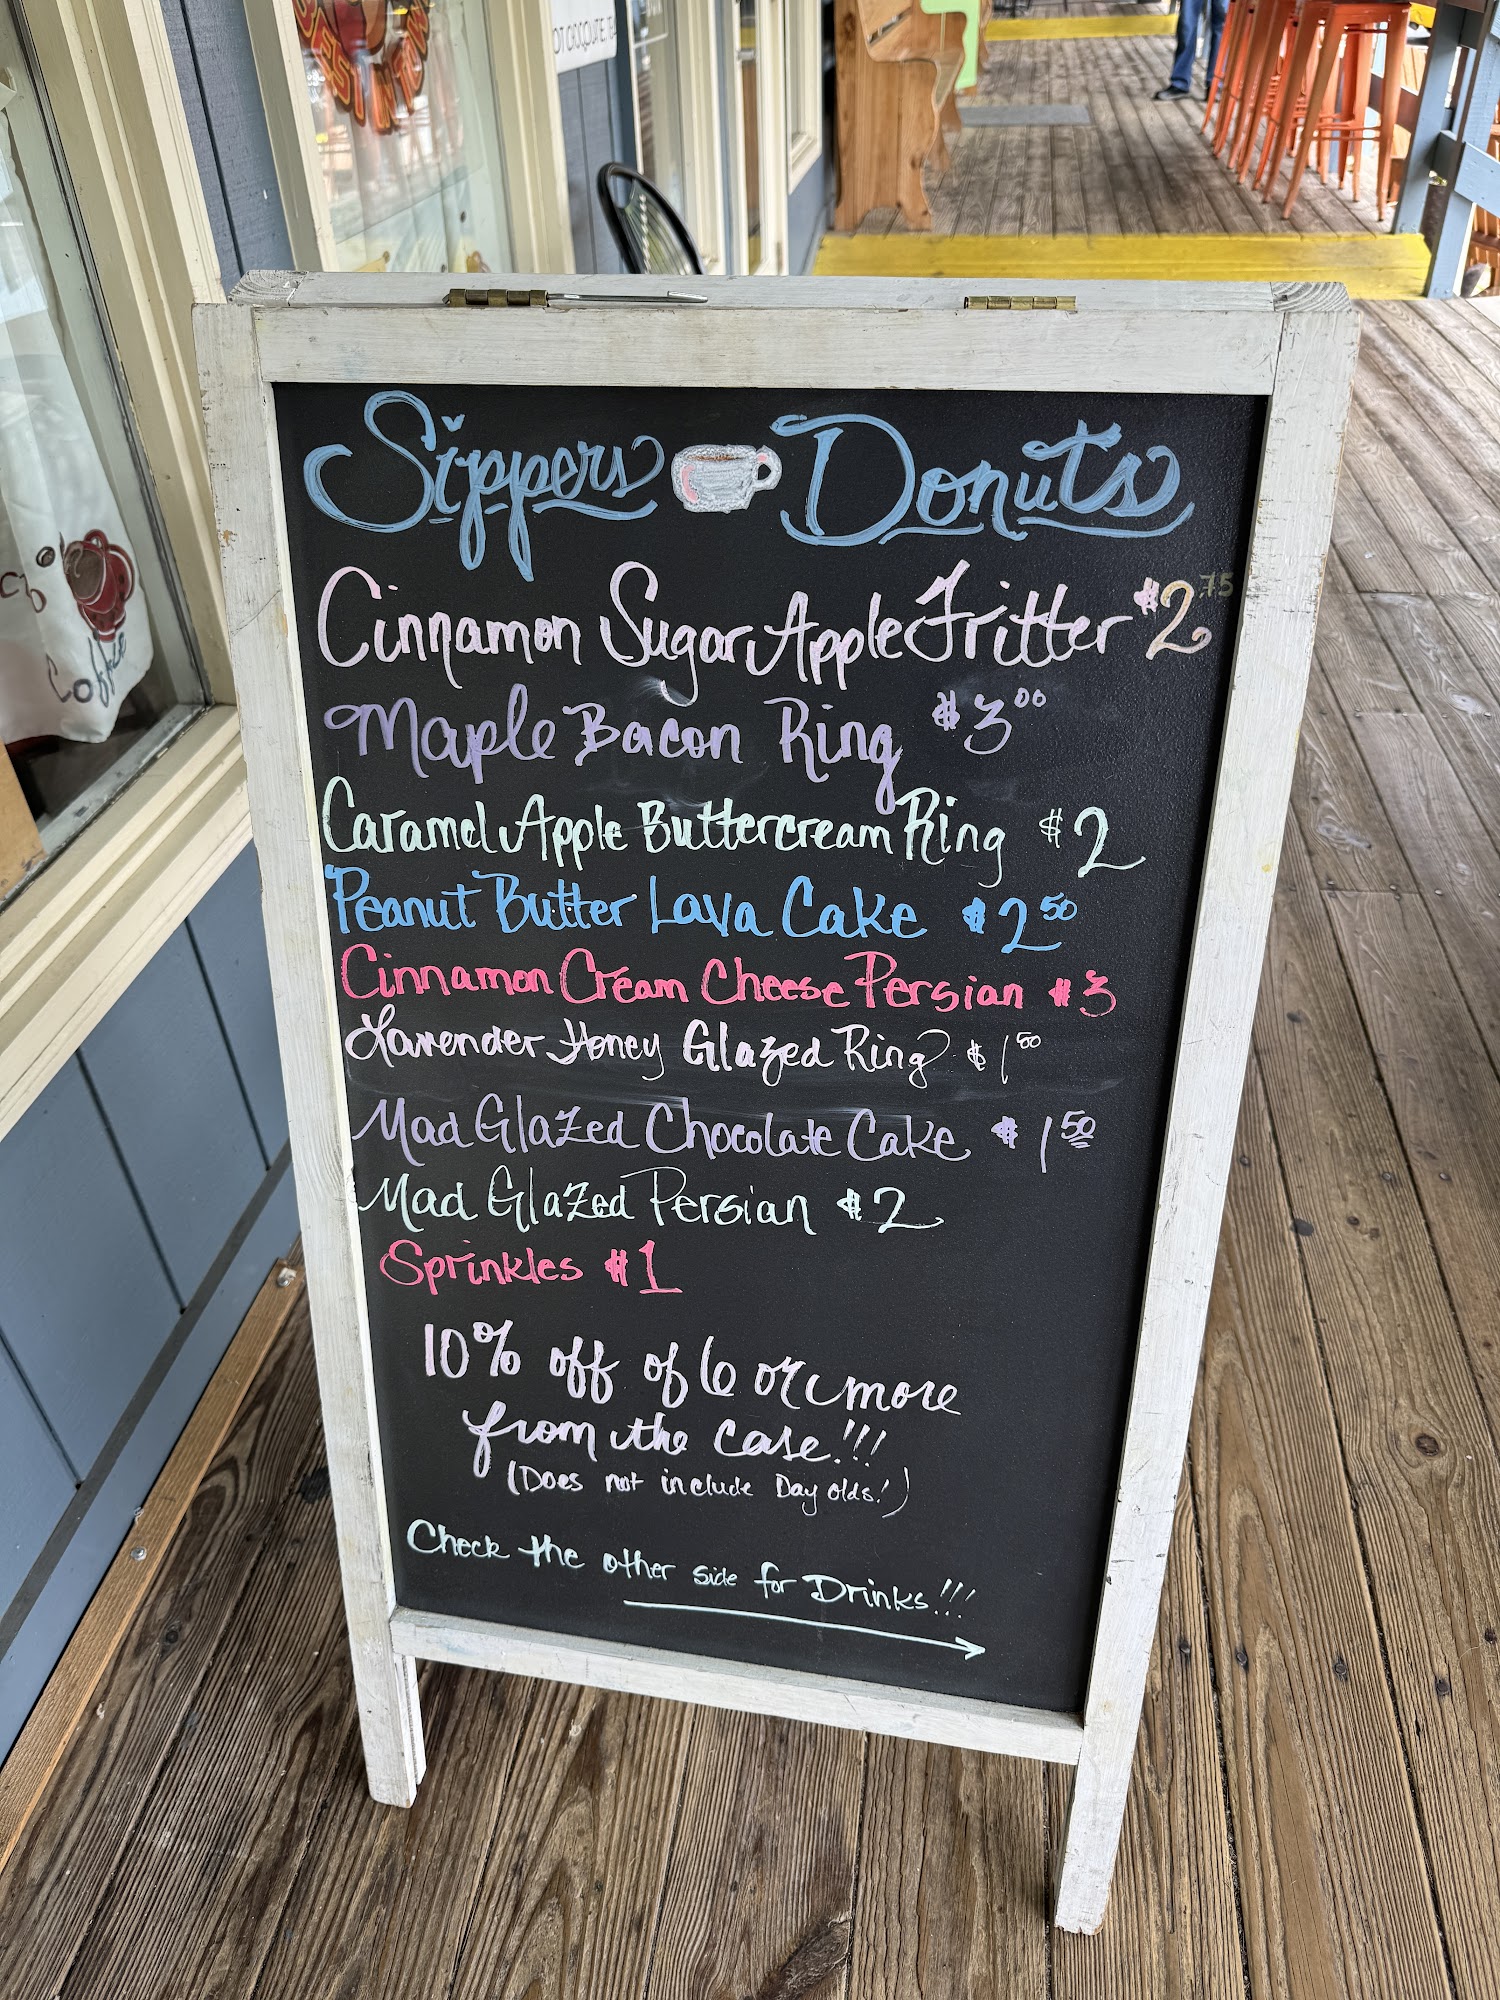 BEST IN TOWN
HOT CHOCOLATE TEA
Coffee
Sippers Donuts
Cinnamon Sugar Apple Fritter $2.75
Maple Bacon Ring $3.00
Caramel Apple Buttercream Ring $2
Peanut Butter Lava Cake $2.50
Cinnamon Cream Cheese Persian $3
Lavender Honey Glazed Ring $1.50
Mad Glazed Chocolate Cake $1.50
Mad Glazed Persian $2
Sprinkles $1
10% off of 6 or more
from the case!!!
(Does not include Day olds!)
Check the other side for Drinks!!!